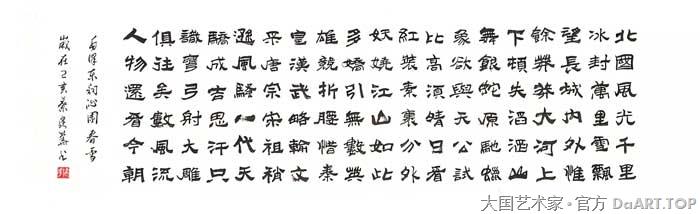 北國風光千里
冰封萬里雪飄
望長城内外惟
餘莽莽大河上
下頓失滔滔山
舞銀蛇原馳蠟
象欲與天公試
比高須晴日看
紅裝素裹分外
妖嬈江山如此
多嬌引無數英
雄競折腰惜秦
皇漢武略輸文
采唐宗宋祖稍
遜風騷一代天
驕成吉思汗只
識彎弓射大雕
俱往矣數風流
人物還看今朝
毛澤東詞沁園春雪
歲在己亥
大国艺术家·官方 DaART.TOP